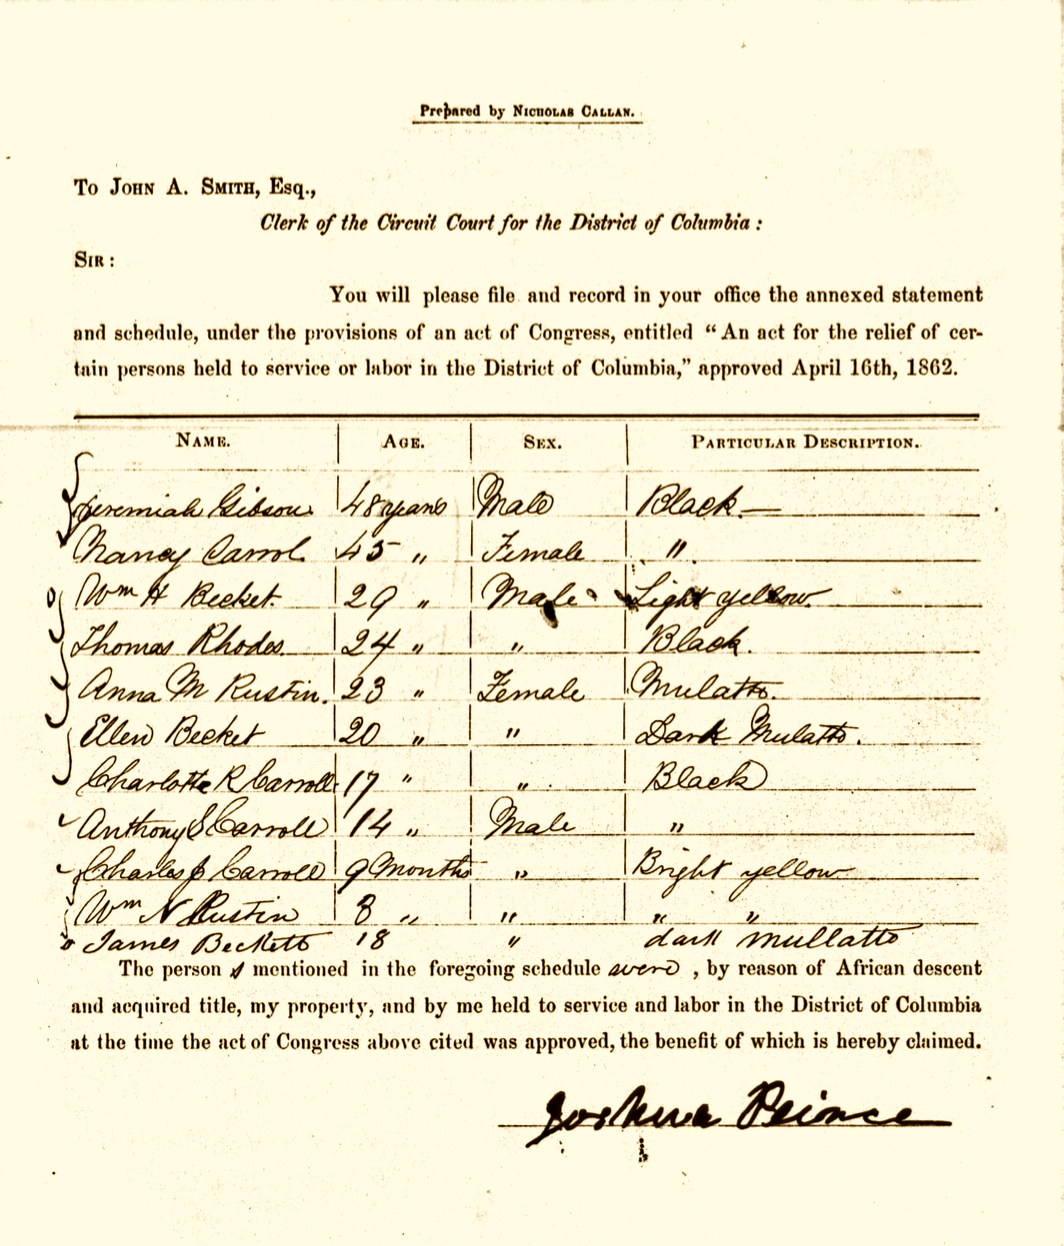 Prepared by Nicholas Callan.
To John A. Smith, Esq.,
Clerk of the Circuit Court for the District of Columbia:
Sir:
You will please file and record in your office the annexed statement
and schedule, under the provisions of an act of Congress, entitled “An act for the relief of cer-
tain persons held to service or labor in the District of Columbia,” approved April 16th, 1862.
Name. Age. Sex. Particular Description.
Jeremiah Gibson 48 years Male Black —
Nancy Carrol 45 „ Female „
Wm H Becket. 29 „ Male Light yellow.
Thomas Rhodes 24 „ „ Black.
Anna M Rustin. 23 „ Female Mulatto.
Ellen Becket 20 „ „ Dark Mulatto.
Charlotte R Carroll 17 „ „ Black
Anthony S Carroll 14 „ Male „
Charles J Carroll 9 Months „ Bright yellow
Wm N Rustin 8 „ „ „ „
James Beckett 18 „ dark mullatto
The persons mentioned in the foregoing schedule were, by reason of African descent
and acquired title, my property, and by me held to service and labor in the District of Columbia
at the time the act of Congress above cited was approved, the benefit of which is hereby claimed.
Joshua Peirce